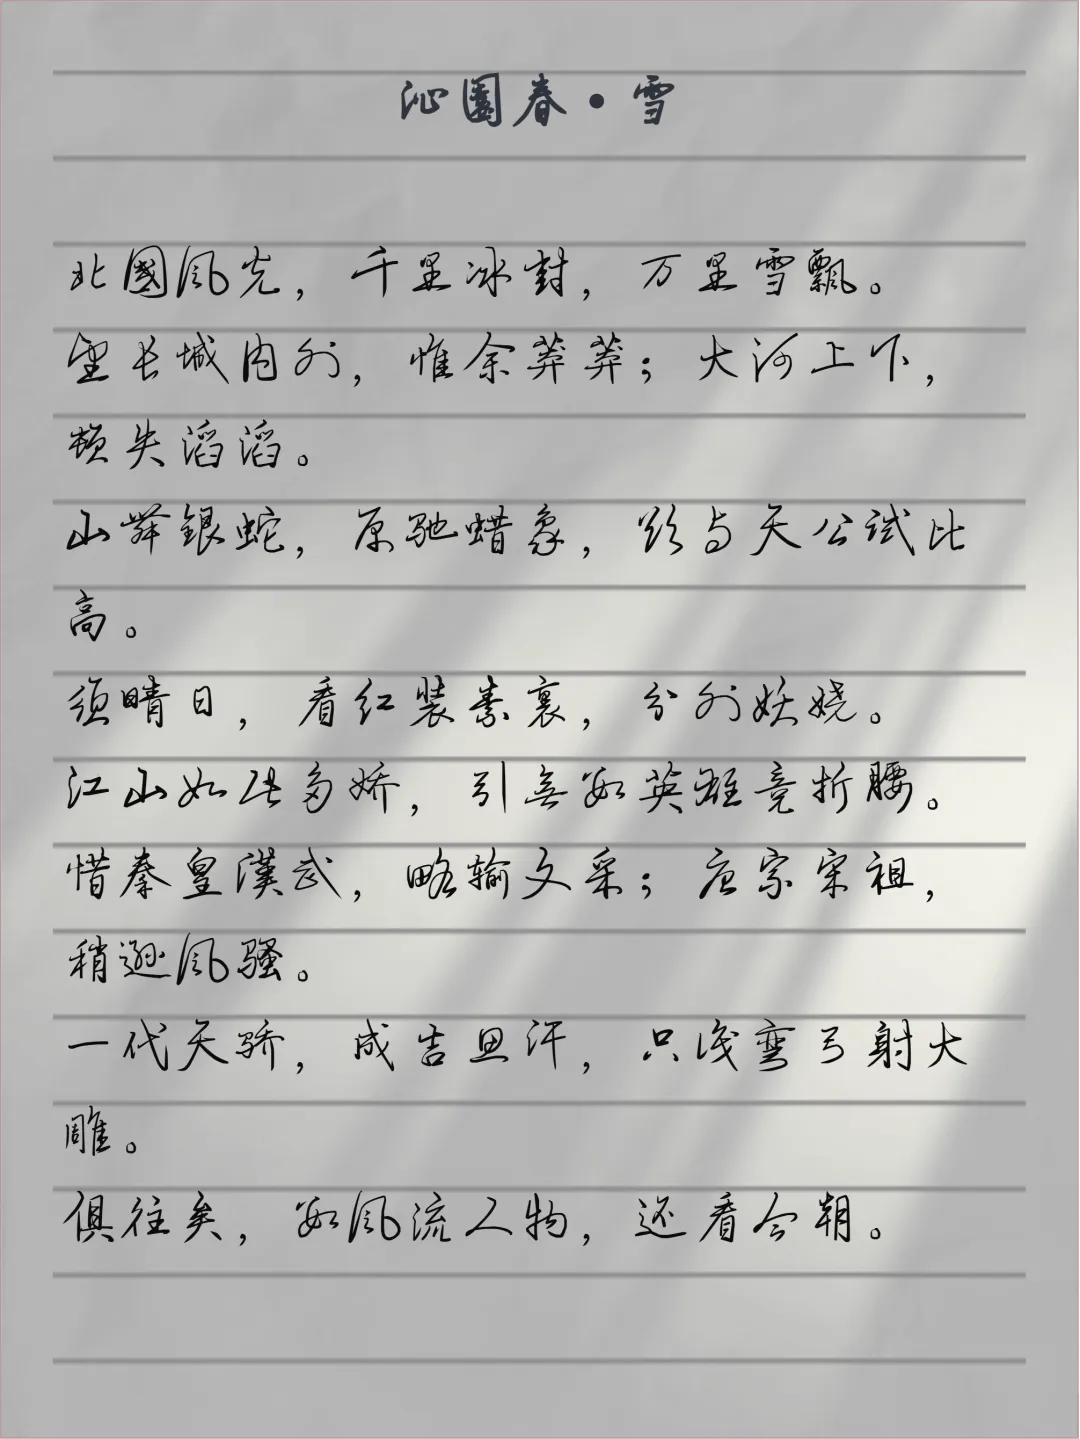 沁園春·雪
北國风光，千里冰封，万里雪飘。
望长城内外，惟余莽莽；大河上下，
顿失滔滔。
山舞銀蛇，原驰蜡象，欲与天公试比
高。
须晴日，看红装素裹，分外妖娆。
江山如此多娇，引无数英雄竞折腰。
惜秦皇漢武，略输文采；唐宗宋祖，
稍逊风骚。
一代天骄，成吉思汗，只识弯弓射大
雕。
俱往矣，数风流人物，还看今朝。